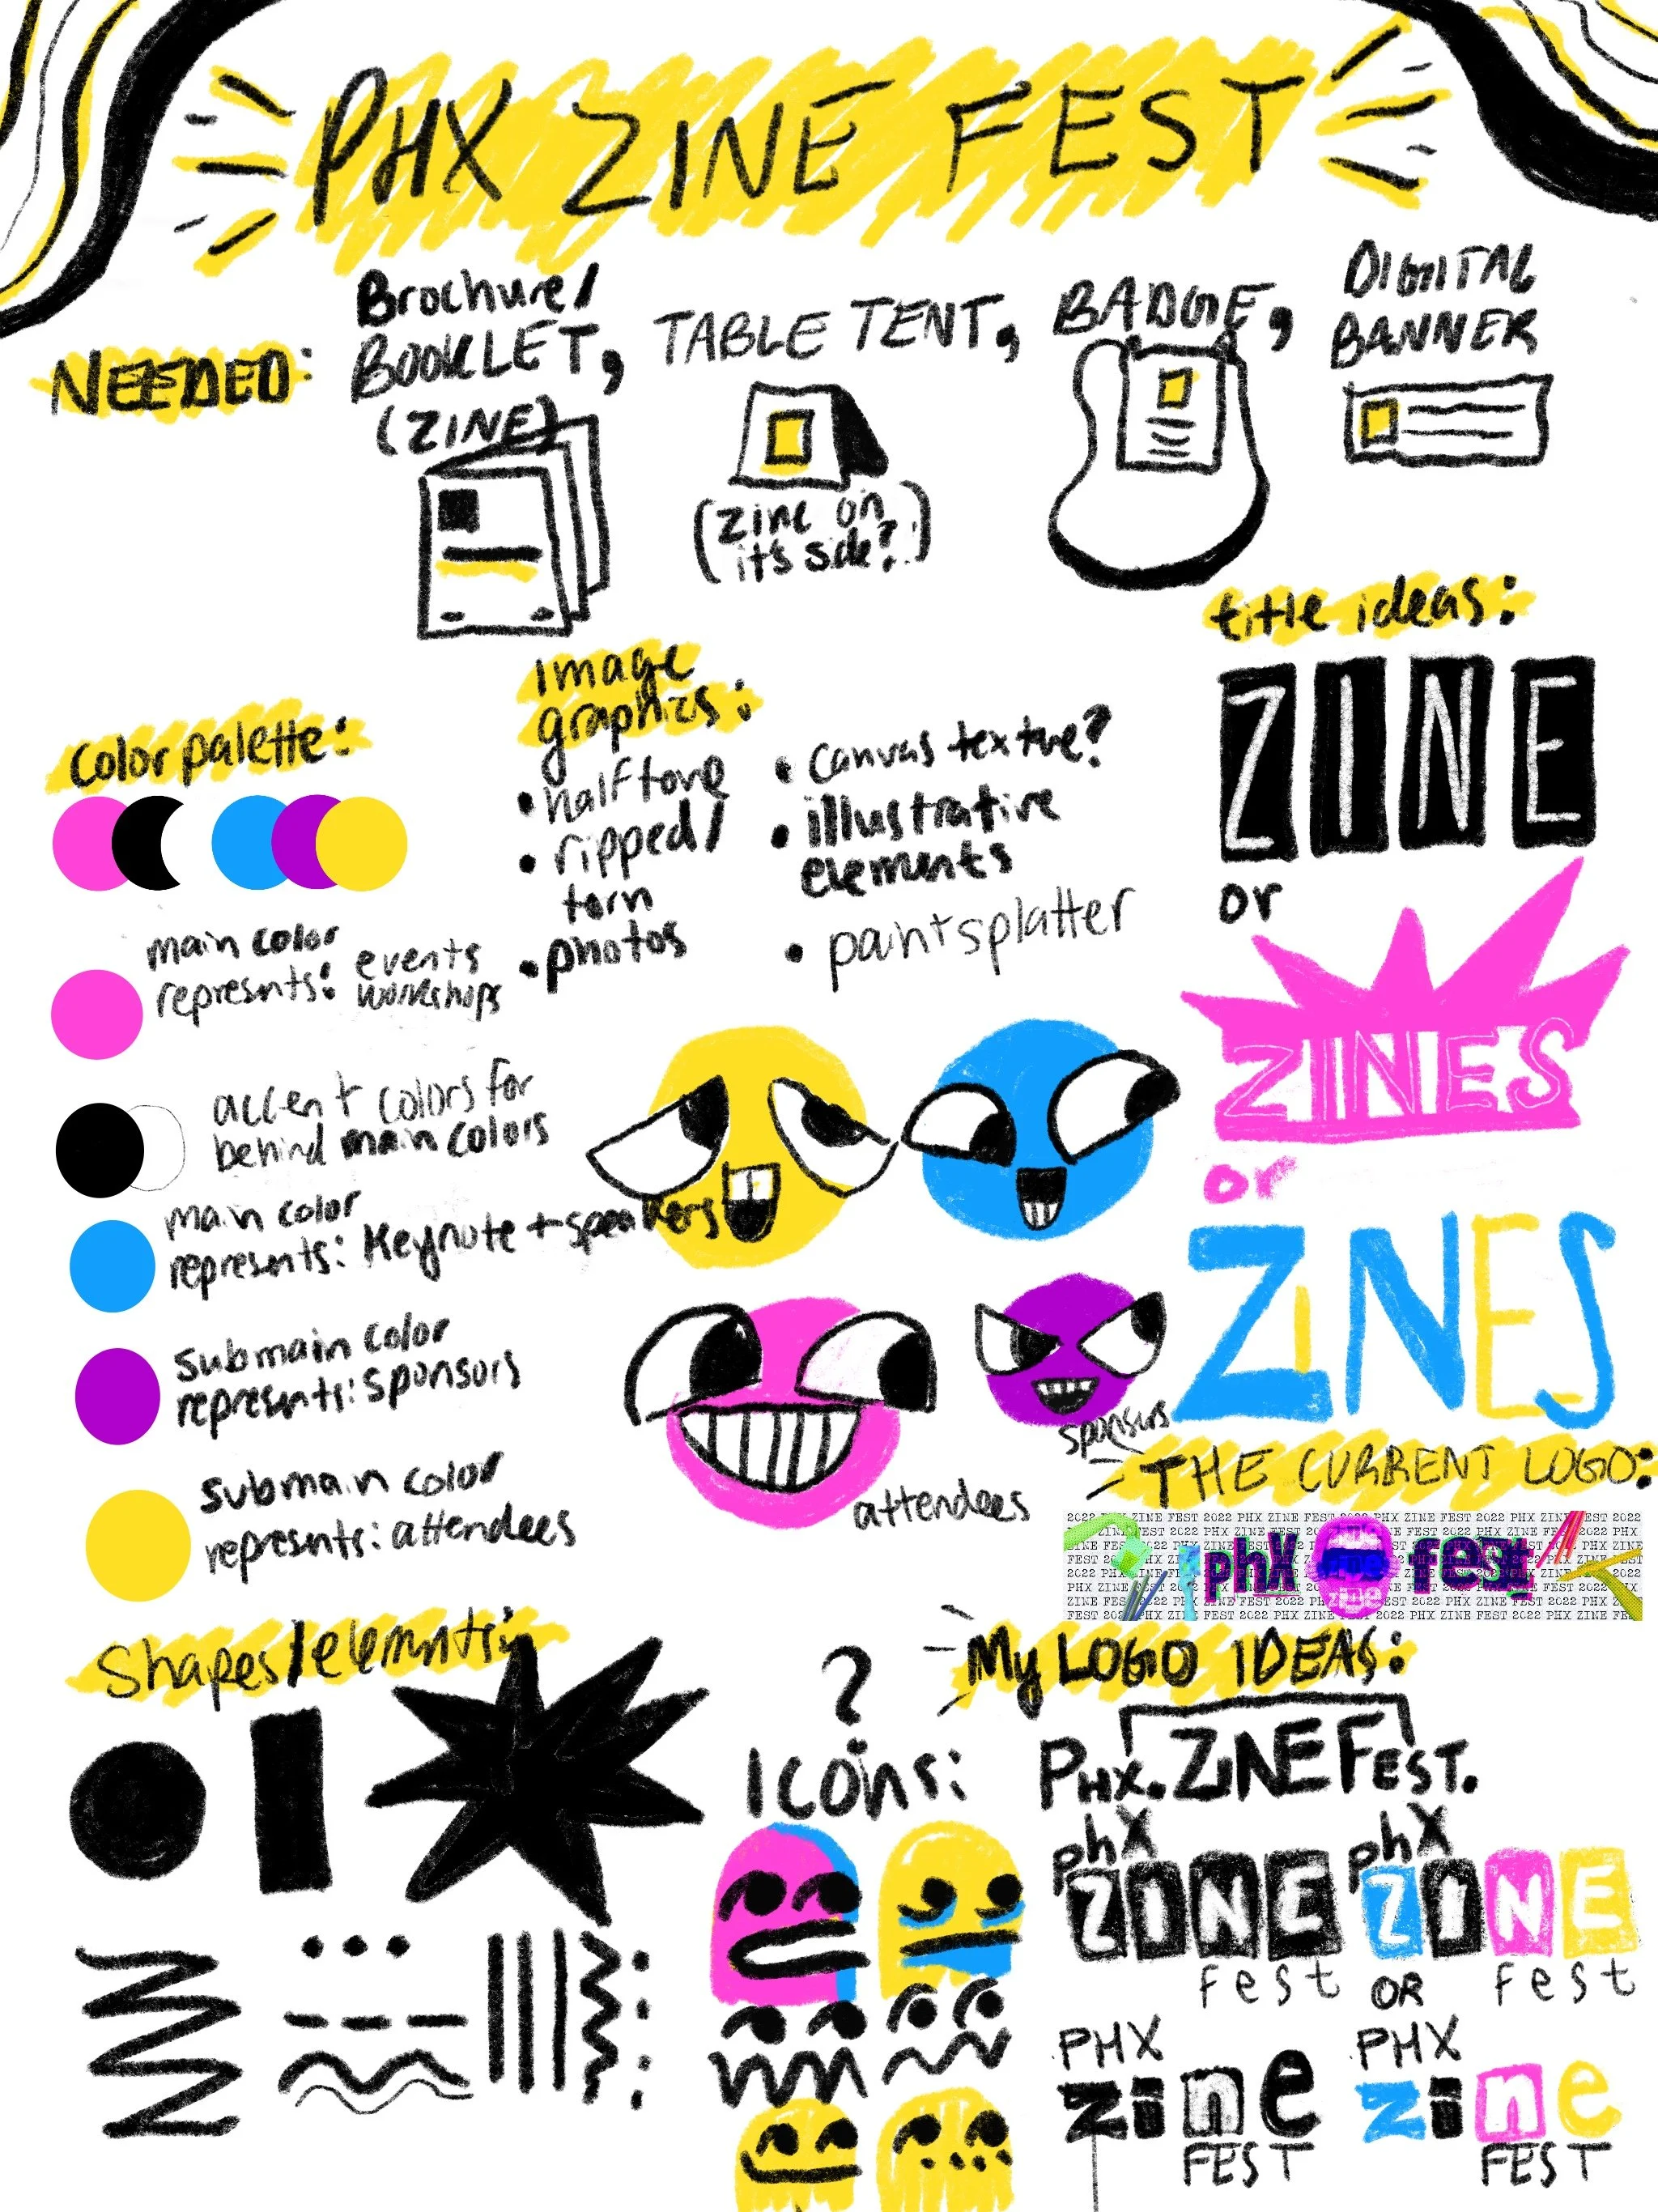 PHX ZINE FEST
NEEDED:
Brochure/
BOOKLET,
(ZINE)
TABLE TENT,
(zine on
it's side?)
BADGE,
DIGITAL
BANNER
Color palette:
main color
represnts: events
workshops
accent colors for
behind main colors
main color
represnts: Keynote + speakers
submain color
represnts: sponsors
submain color
represnts: attendees
image
graphics:
• halftone
• ripped/
torn
• photos
• canvas texture?
• illustrative
elements
• paint splatter
attendees
sponsors
title ideas:
ZINE
or
ZINES
or
ZINES
THE CURRENT LOGO:
2022 PHX ZINE FEST 2022 PHX ZINE FEST 2022 PHX ZINE FEST 2022
phx zine fest
My LOGO IDEAS:
PHX. ZINE FEST.
phx
ZINE
fest
phx
ZINE
fest
OR
PHX
zine
FEST
PHX
zine
FEST
Shapes/elemnts:
?
Icons: